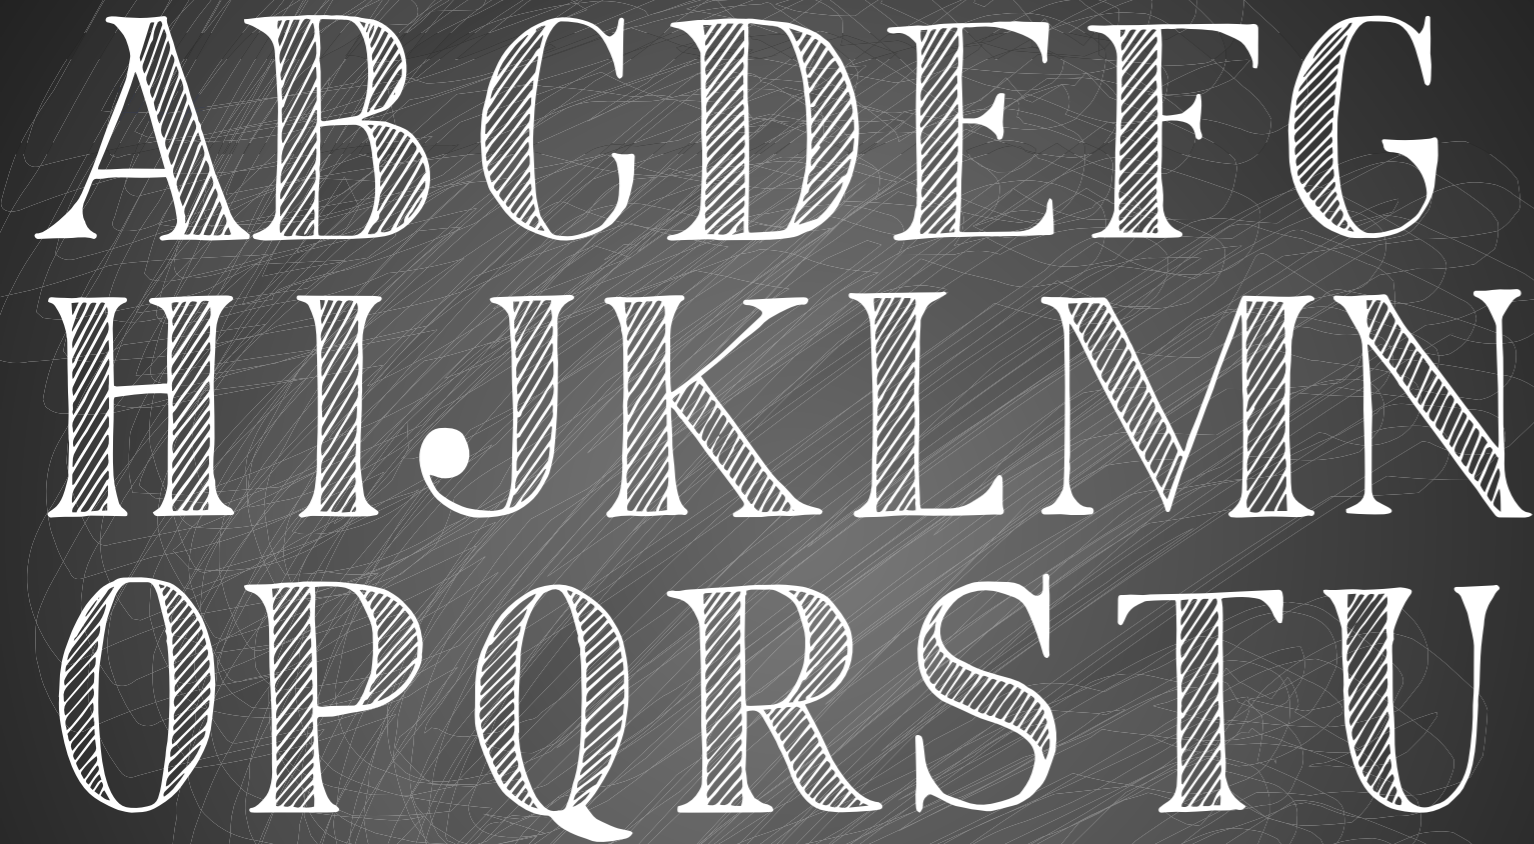 ABCDEFG
HIJKLMN
OPQRSTU